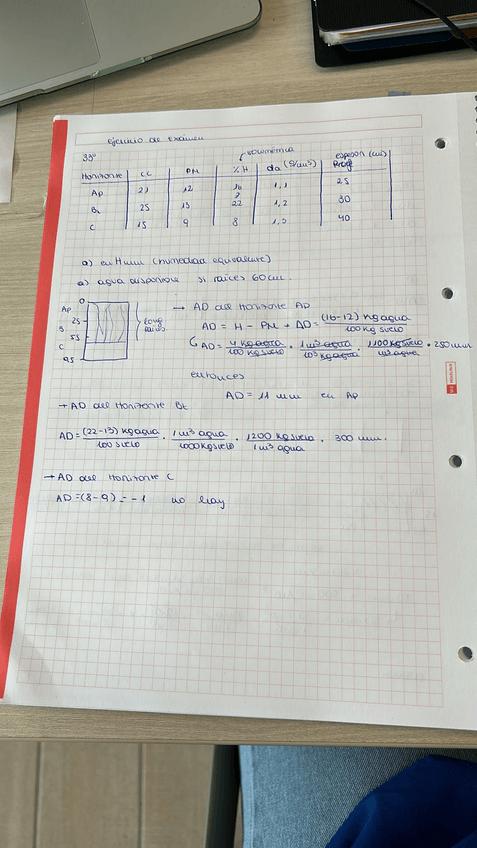 ejercicio de exámen
33º
volumétrica
Horizonte CC PM % H da (g/cm3) espesor (cm)
Prof
Ap 21 12 16 1,1 25
Bt 25 13 22 1,2 30
C 15 9 8 1,5 40
a) en H mm (humedad equivalente)
a) agua disponible si raíces 60 cm.
0
Ap
25
B
55
C
95
long raíces
→ AD del Horizonte Ap
AD = H - PM → AD = (16-12) kg agua / 100 kg suelo
AD = 4 kg agua / 100 kg suelo · 1 m3 agua / 10³ kg agua · 1100 kg suelo / m3 agua · 250 mm
entonces
AD = 11 mm en Ap
→ AD del Horizonte Bt
AD = (22-13) kg agua / 100 suelo · 1 m³ agua / 1000 kg suelo · 1200 kg suelo / 1 m³ agua · 300 mm.
→ AD del Horizonte C
AD = (8-9) = -1 no hay